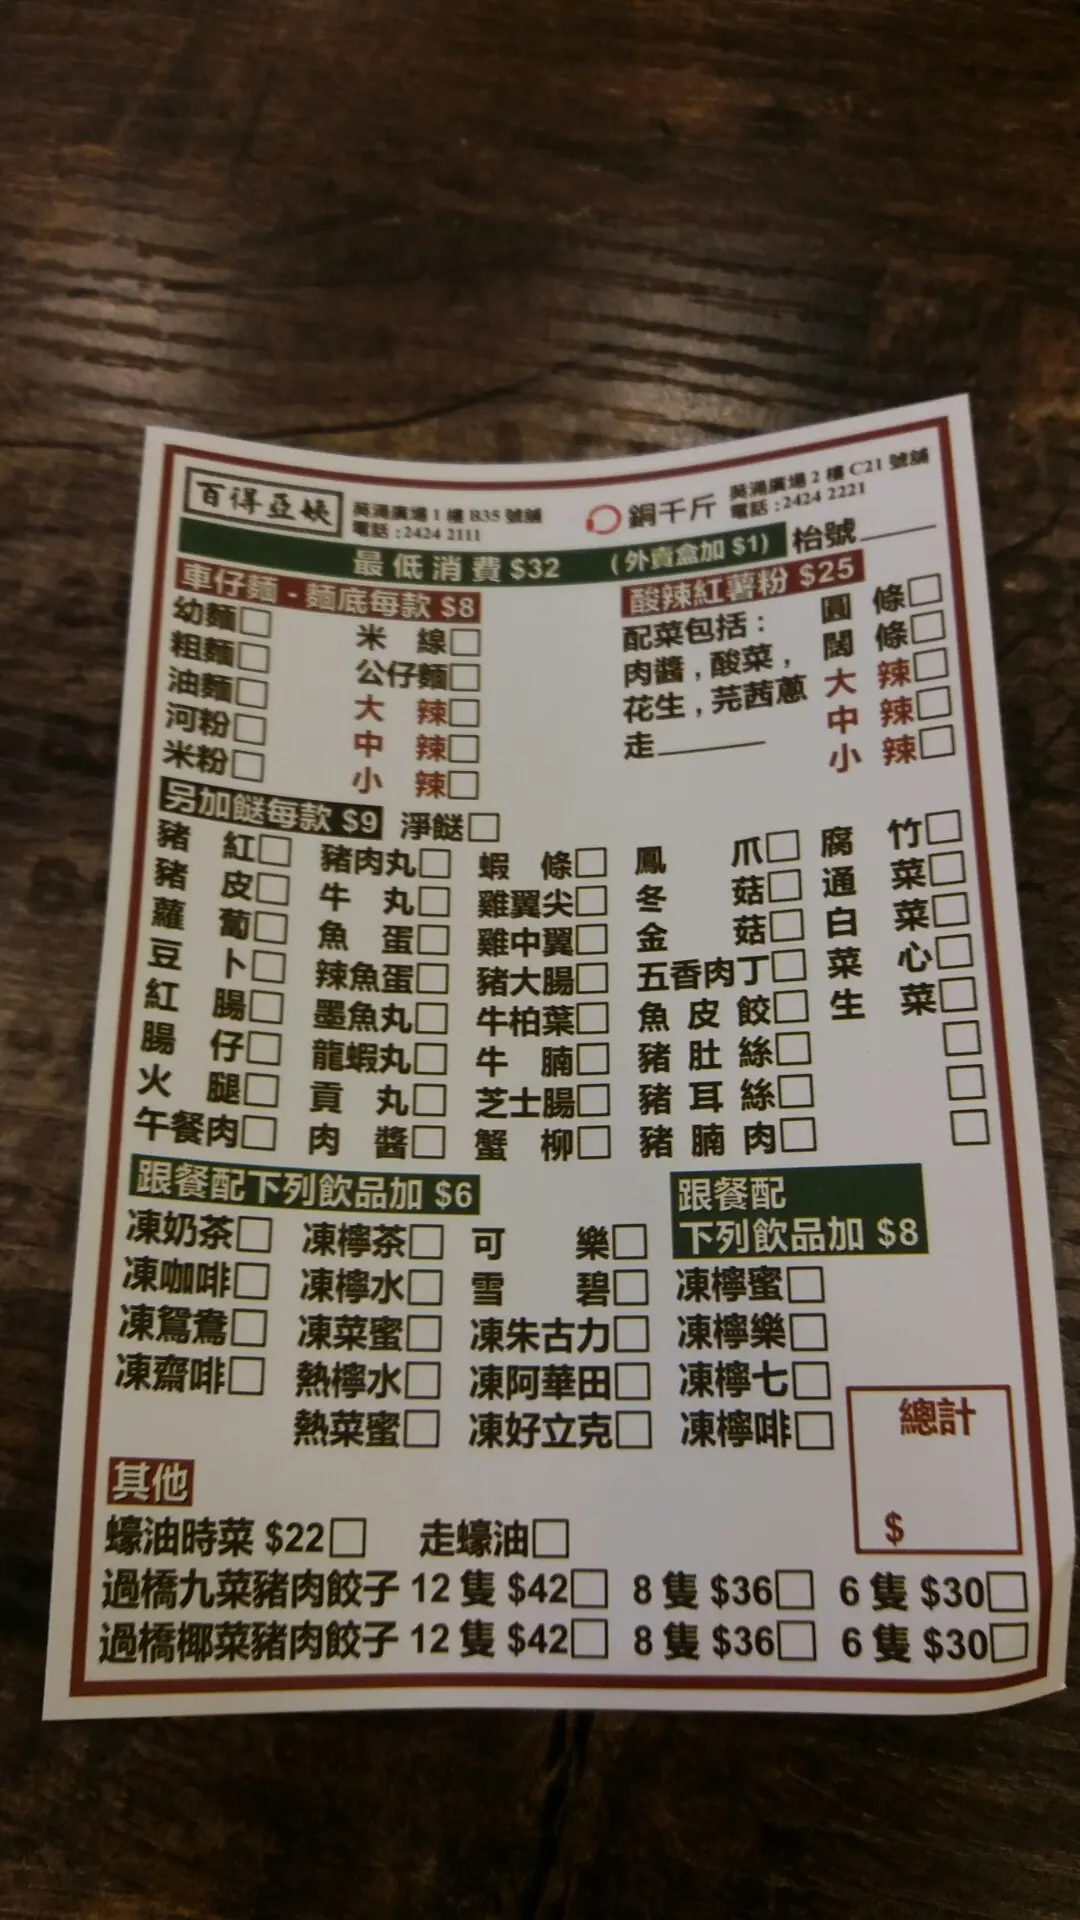 百得亞姨 葵涌廣場 1 樓 B35 號舖
電話 : 2424 2111
銅千斤 葵涌廣場 2 樓 C21 號舖
電話 : 2424 2221
最低消費 $32 (外賣盒加 $1) 枱號
車仔麵 - 麵底每款 $8
幼麵 米線
粗麵 公仔麵
油麵 大辣
河粉 中辣
米粉 小辣
酸辣紅薯粉 $25
配菜包括 : 圓條
肉醬 , 酸菜 , 闊條
花生 , 芫茜蔥 大辣
走 中辣
小辣
另加餸每款 $9 淨餸
豬紅 豬肉丸 蝦條 鳳爪 腐竹
豬皮 牛丸 雞翼尖 冬菇 通菜
蘿蔔 魚蛋 雞中翼 金菇 白菜
豆卜 辣魚蛋 豬大腸 五香肉丁 菜心
紅腸 墨魚丸 牛柏葉 魚皮餃 生菜
腸仔 龍蝦丸 牛腩 豬肚絲
火腿 貢丸 芝士腸 豬耳絲
午餐肉 肉醬 蟹柳 豬腩肉
跟餐配下列飲品加 $6
凍奶茶 凍檸茶 可樂
凍咖啡 凍檸水 雪碧
凍鴛鴦 凍菜蜜 凍朱古力
凍齋啡 熱檸水 凍阿華田
熱菜蜜 凍好立克
跟餐配
下列飲品加 $8
凍檸蜜
凍檸樂
凍檸七
凍檸啡
總計
$
其他
蠔油時菜 $22 走蠔油
過橋九菜豬肉餃子 12 隻 $42 8 隻 $36 6 隻 $30
過橋椰菜豬肉餃子 12 隻 $42 8 隻 $36 6 隻 $30